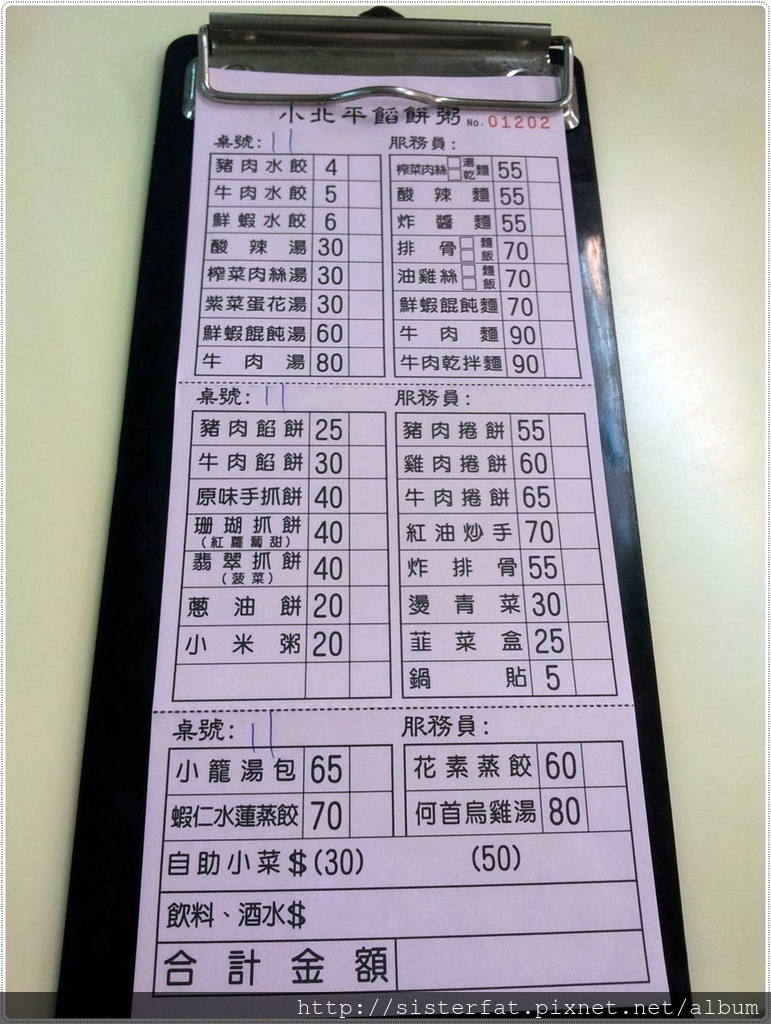 小北平餡餅粥 No. 01202
桌號: 11 服務員:
豬肉水餃 4 榨菜肉絲 湯 乾 麵 55
牛肉水餃 5 酸辣麵 55
鮮蝦水餃 6 炸醬麵 55
酸辣湯 30 排骨 麵 飯 70
榨菜肉絲湯 30 油雞絲 麵 飯 70
紫菜蛋花湯 30 鮮蝦餛飩麵 70
鮮蝦餛飩湯 60 牛肉麵 90
牛肉湯 80 牛肉乾拌麵 90
桌號: 11 服務員:
豬肉餡餅 25 豬肉捲餅 55
牛肉餡餅 30 雞肉捲餅 60
原味手抓餅 40 牛肉捲餅 65
珊瑚抓餅 40 紅油炒手 70
(紅蘿蔔甜)
翡翠抓餅 40 炸排骨 55
(菠菜)
蔥油餅 20 燙青菜 30
小米粥 20 韮菜盒 25
鍋貼 5
桌號: 11 服務員:
小籠湯包 65 花素蒸餃 60
蝦仁水蓮蒸餃 70 何首烏雞湯 80
自助小菜$(30) (50)
飲料、酒水$
合計金額
http://sisterfat.pixnet.net/album